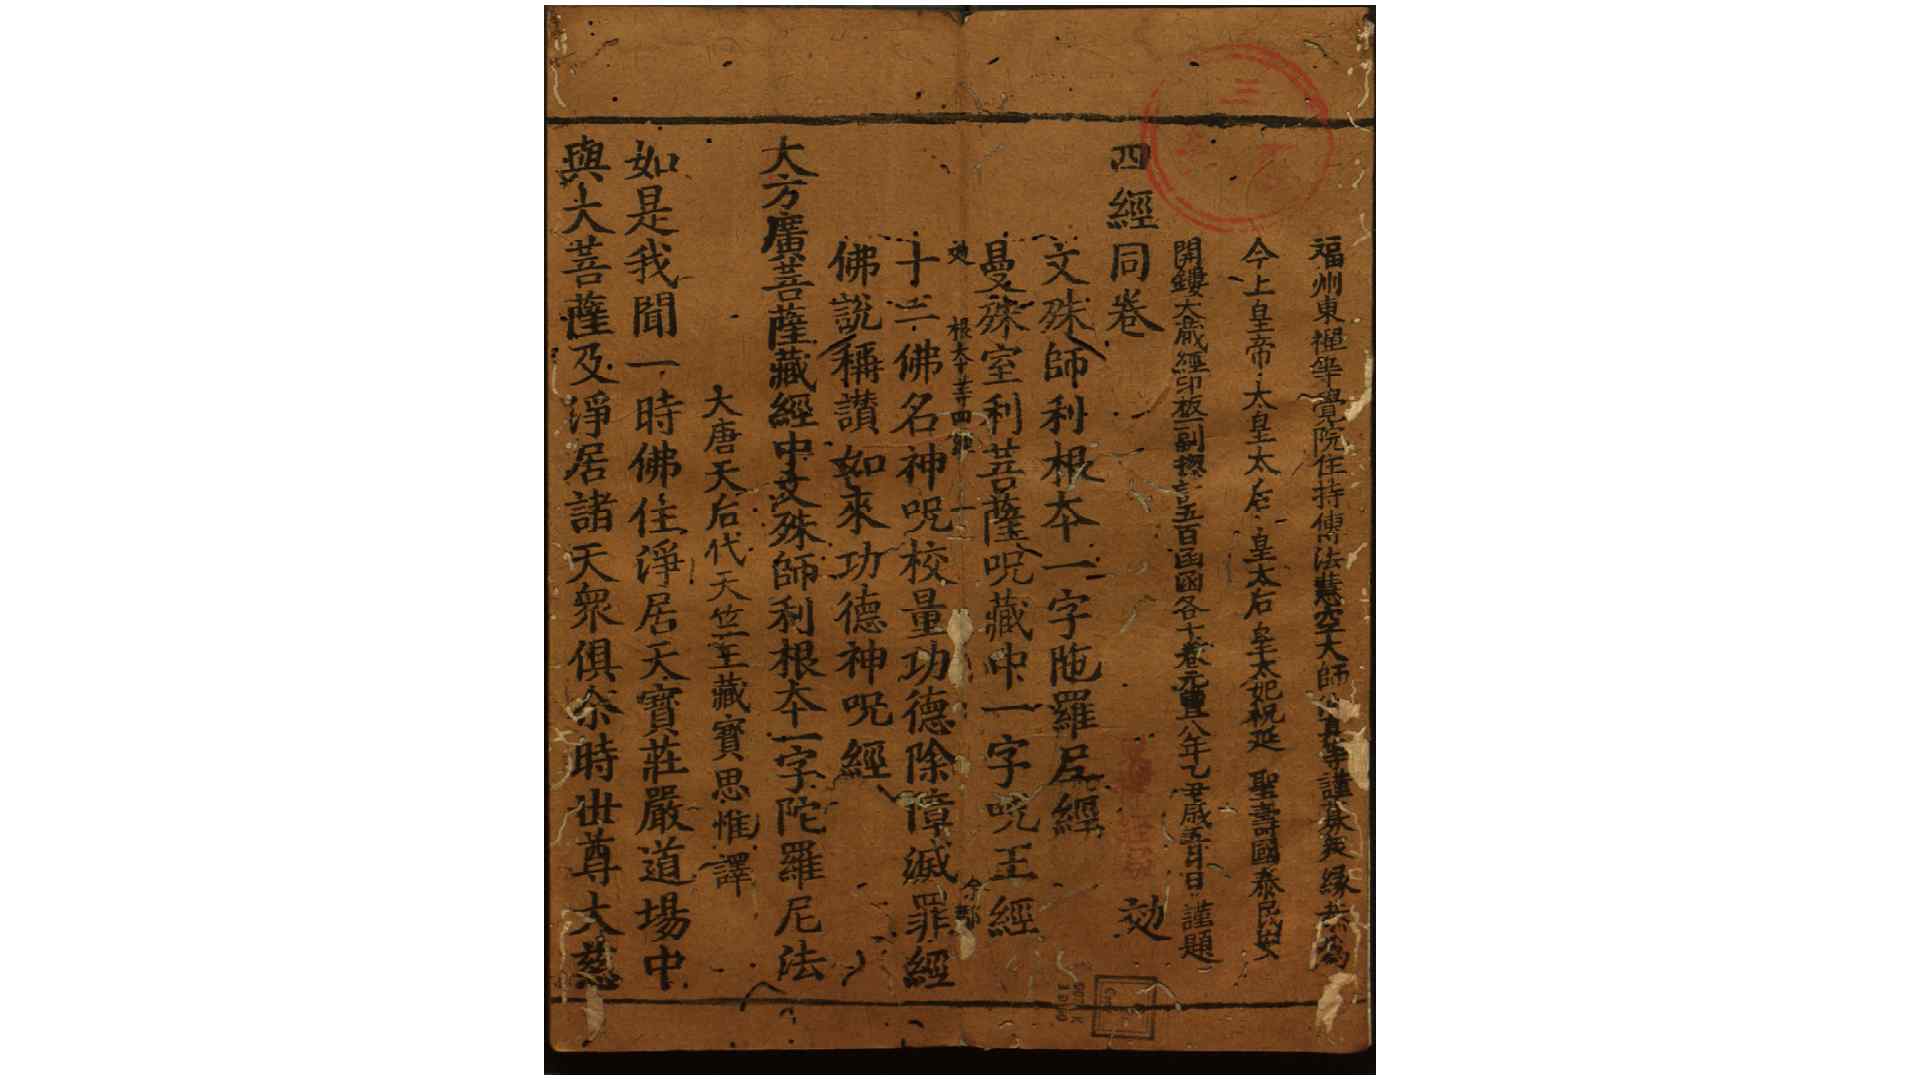 福州東禪等覺院住持傳法慧空大師沖真等謹募衆緣恭為
今上皇帝太皇太后皇太后皇太妃祝延聖壽國泰民安
開鏤大藏經印板一副揔計五百函函各十卷元豐八年乙丑歲五月日謹題
四經同卷 効
文殊師利根本一字陁羅尼經
曼殊室利菩薩呪藏中一字呪王經
効 根本十等四經 一
十二佛名神呪校量功德除障滅罪經
佛說稱讃如來功德神呪經
大方廣菩薩藏經中文殊師利根本一字陀羅尼法
大唐天后代天竺三藏寶思惟譯
如是我聞一時佛住淨居天寶莊嚴道場中
與大菩薩及淨居諸天衆俱尒時世尊大慈